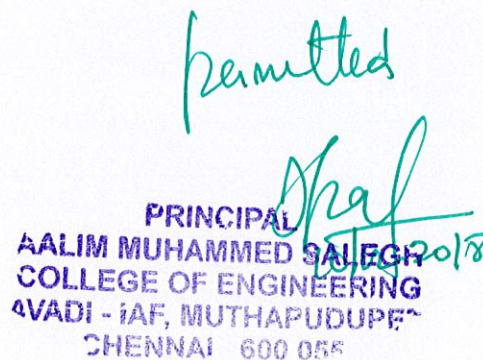 permitted
PRINCIPAL
AALIM MUHAMMED SALEGH
COLLEGE OF ENGINEERING
AVADI - IAF, MUTHAPUDUPET
CHENNAI 600 055
2018